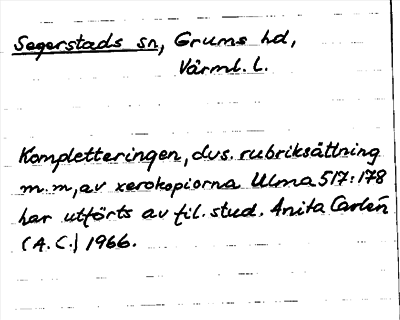 Segerstads sn, Grums hd,
Värml. l.
Kompletteringen, dvs. rubriksättning
m.m, av xerokopiorna Ulma 517:178
har utförts av fil. stud. Anita Carlén
(A.C.) 1966.